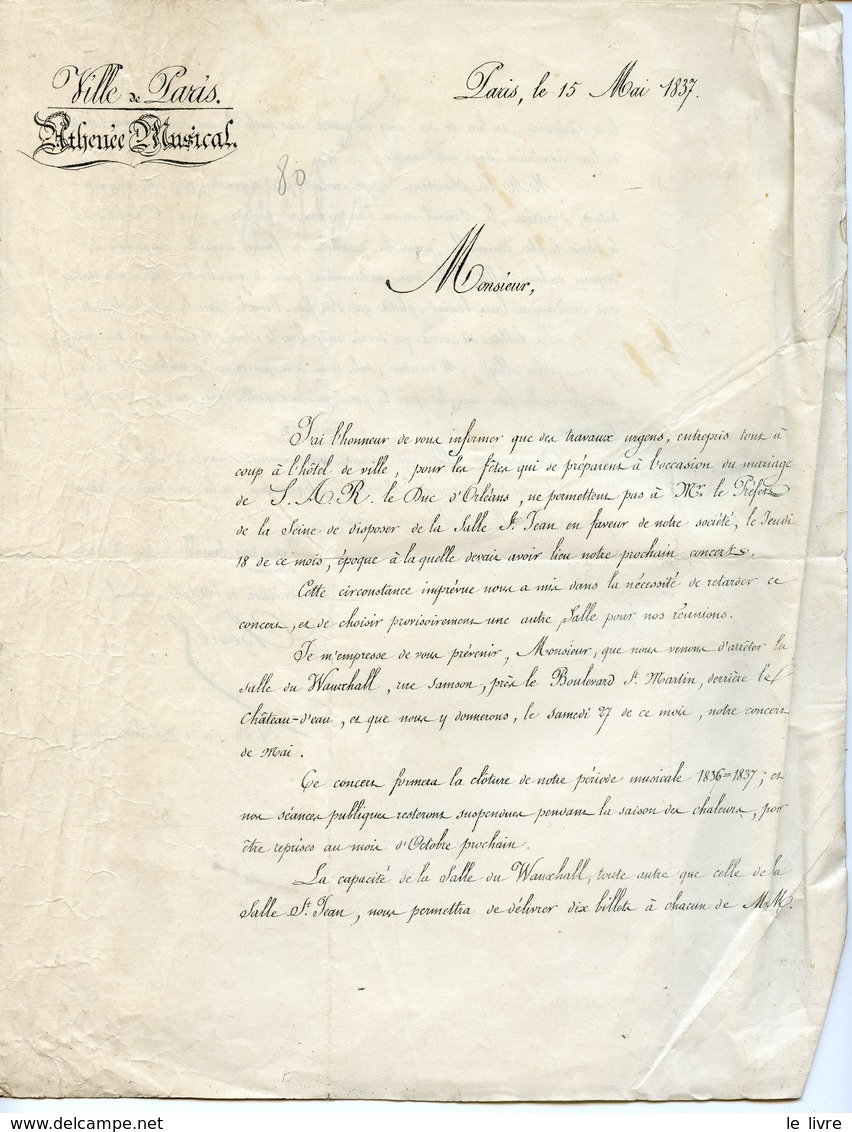 Ville de Paris.
Athenée Musical.
Paris, le 15 Mai 1837.
80
Monsieur,
J'ai l'honneur de vous informer que des travaux urgens, entrepris tout à
coup à l'hôtel de ville, pour les fêtes qui se préparent à l'occasion du mariage
de S. A. R. le Duc d'Orléans, ne permettent pas à Mr. le Préfet
de la Seine de disposer de la Salle St. Jean en faveur de notre société, le Jeudi
18 de ce mois, époque à laquelle devait avoir lieu notre prochain concert.
Cette circonstance imprévue nous a mis dans la nécessité de retarder ce
concert, et de choisir provisoirement une autre Salle pour nos réunions.
Je m'empresse de vous prévenir, Monsieur, que nous venons d'arrêter la
salle du Wauxhall, rue Samson, près le Boulevard St. Martin, derrière le
Château-d'eau, et que nous y donnerons, le samedi 27 de ce mois, notre concert
de Mai.
Ce concert formera la clôture de notre période musicale 1836=1837; et
nos séances publiques resteront suspendues pendant la saison des chaleurs, pour
être reprises au mois d'Octobre prochain.
La capacité de la Salle du Wauxhall, toute autre que celle de la
Salle St. Jean, nous permettra de délivrer dix billets à chacun de M.M.
le livre